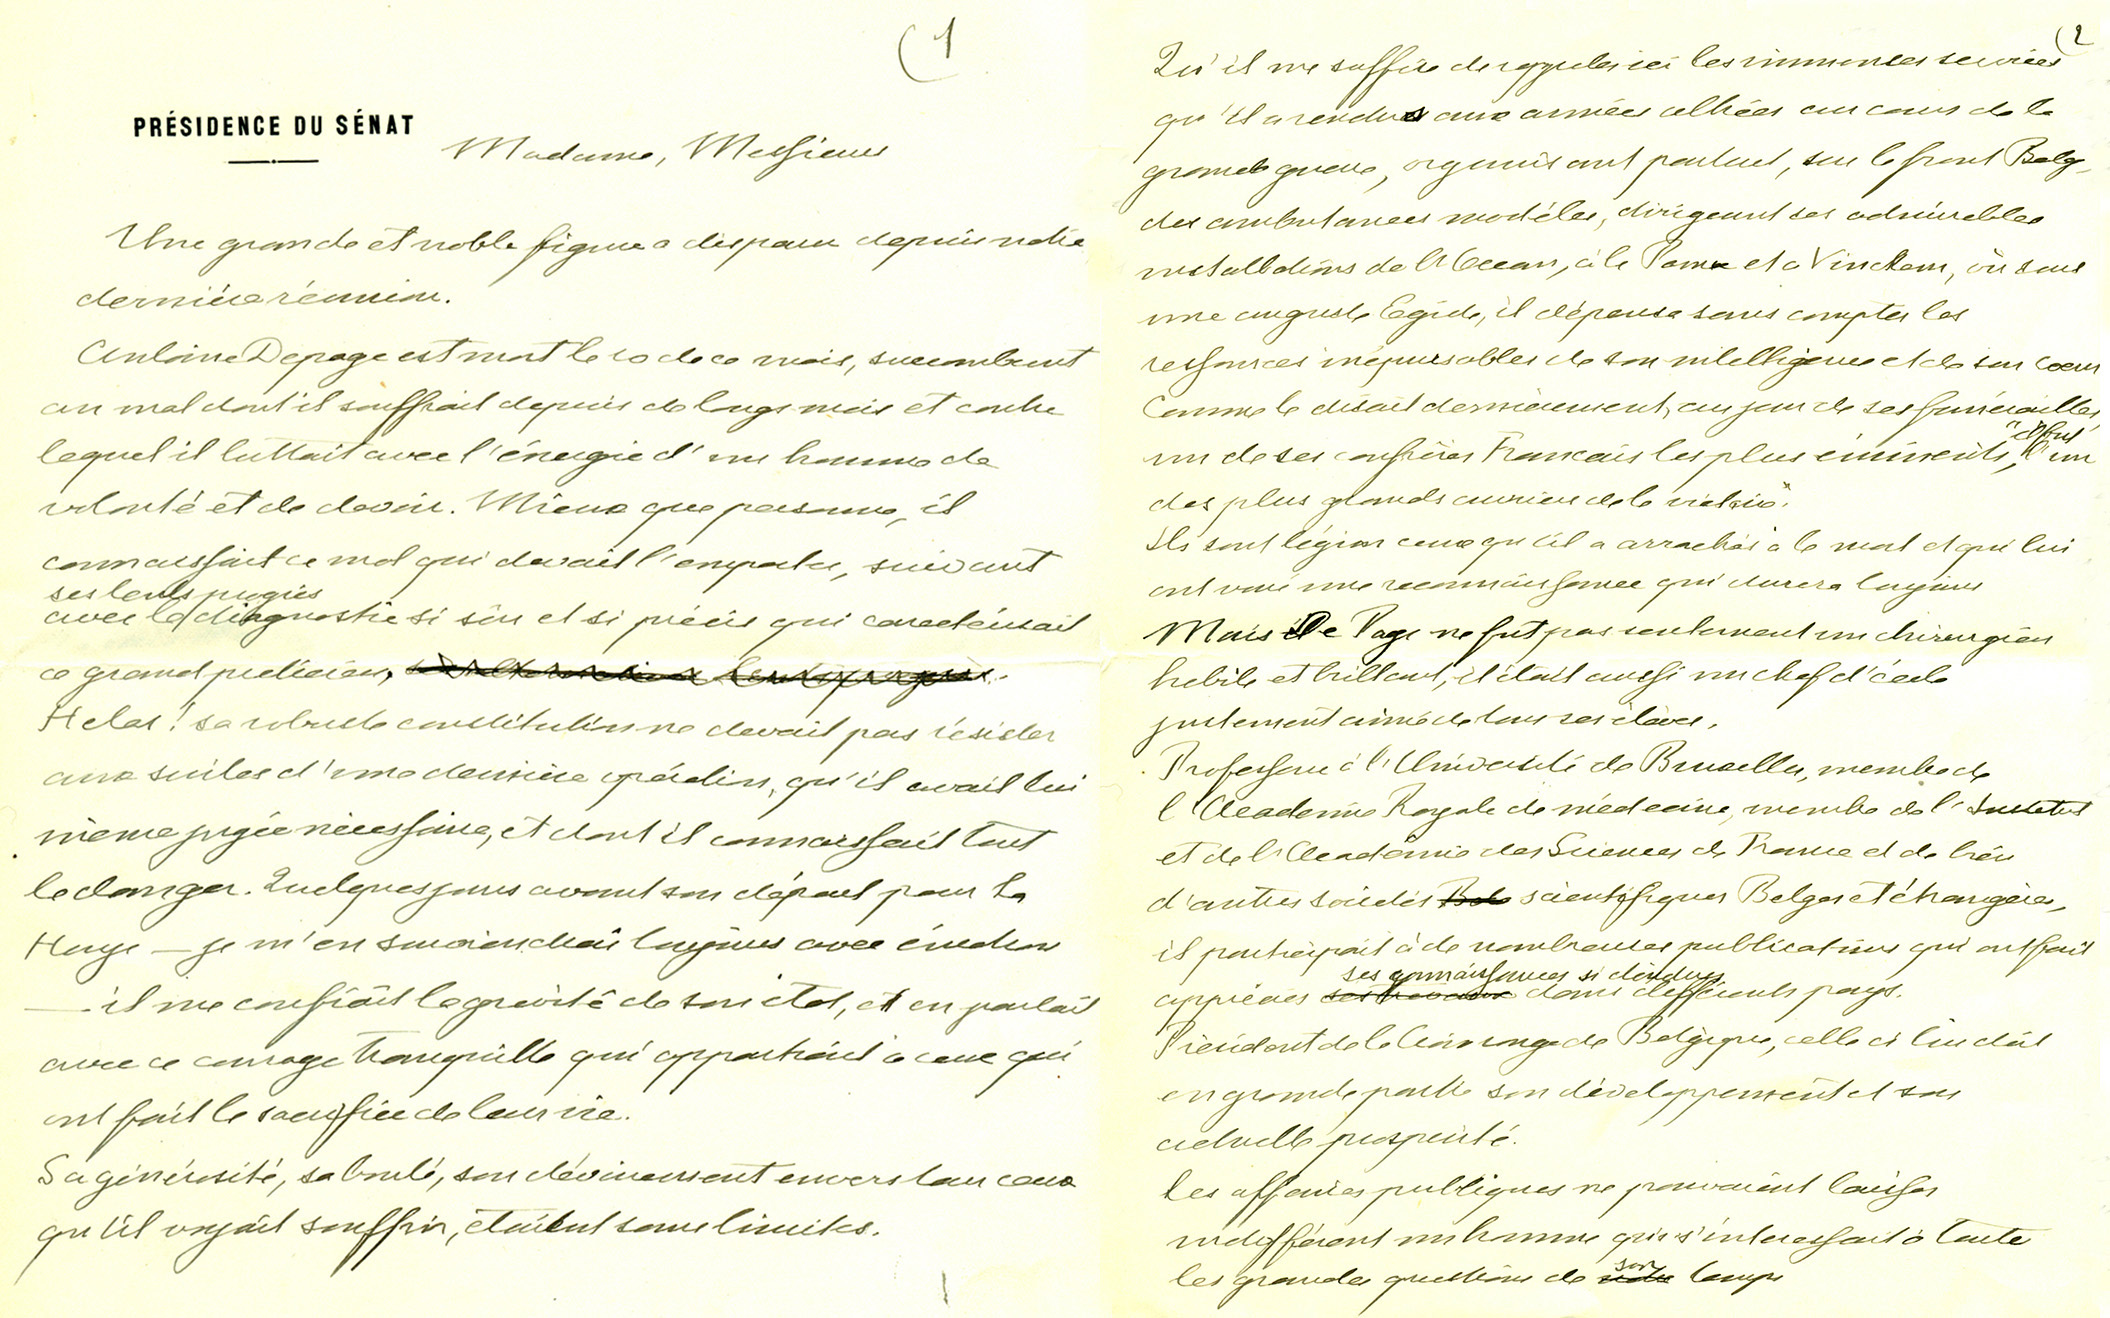 (1
PRÉSIDENCE DU SÉNAT
Madame, Messieurs
Une grande et noble figure a disparu depuis notre
dernière réunion.
Antoine Depage est mort le 10 de ce mois, succombant
au mal dont il souffrait depuis de longs mois et contre
lequel il luttait avec l'énergie d'un homme de
volonté et de devoir. Mieux que personne, il
connaissait ce mal qui devait l'emporter, suivant
ses lents progrès
avec le diagnostic si sûr et si précis qui caractérisait
ce grand praticien,
Helas! sa robuste constitution ne devait pas résister
aux suites d'une dernière opération, qu'il avait lui
même jugée nécessaire, et dont il connaissait tout
le danger. Quelques jours avant son départ pour La
Haye — je m'en souviendrai toujours avec émotion
— il me confiait la gravité de son état, et en parlait
avec ce courage tranquille qui appartient à ceux qui
ont fait le sacrifice de leur vie.
Sa générosité, sa bonté, son dévouement envers tous ceux
qu'il voyait souffrir, étaient sans limites.
(2
Qu'il me suffise de rappeler ici les immenses services
qu'il a rendus aux armées alliées au cours de la
grande guerre, organisant partout, sur le front Belge
des ambulances modèles, dirigeant ses admirables
installations de l'Océan, à la Panne et à Vinckem, où sous
une auguste Egide, il dépensa sans compter les
ressources inépuisables de son intelligence et de son coeur
Comme le disait dernièrement, au jour de ses funérailles
un de ses confrères Français les plus éminents, "il fut l'un
des plus grands ouvriers de la victoire".
Ils sont légion ceux qu'il a arrachés à la mort et qui lui
ont voué une reconnaissance qui durera toujours
Mais De Page ne fut pas seulement un chirurgien
habile et brillant, il était aussi un chef d'école
justement aimé de tous ses élèves.
Professeur à l'Université de Bruxelles, membre de
l'Academie Royale de médecine, membre de l'Institut
et de l'Académie des Sciences de France et de bien
d'autres sociétés scientifiques Belges et étrangères,
il participait à de nombreuses publications qui ont fait
ses connaissances si étendues
apprécier ses travaux dans différents pays.
Président de la Croix rouge de Belgique, celle ci lui doit
en grande partie son développement et son
actuelle prospérité.
Les affaires publiques ne pouvaient laisser
indifférent un homme qui s'interessait à toute
les grandes questions de son temps